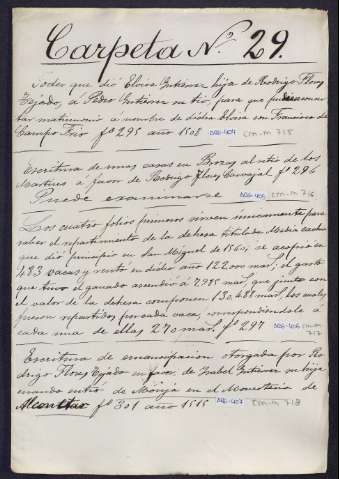 Carpeta Nº 29.
Poder que dió Elvira Gutiérrez hija de Rodrigo Flores
Tejado, á Pedro Gutiérrez su tio, para que
tar matrimonio á nombre de dicha Elvira con Francisco de
Campo Frio fº 295 año 1508 DAG-404 cm-m 715
Escritura de unas casas en Brozas al sitio de los
Martines á favor de Rodrigo Flores Carvajal fº 296
Puede examinarse DAG-405 cm-m 716
Los cuatro folios primeros sirven únicamente para
saber el repartimiento de la dehesa titulada Media
que dió principio en San Miguel de 1561; se acopió en
483 vacas y rentó en dicho año 122000 mars; el gasto
que tuvo el ganado ascendió á 7985 mars, que junto con
el valor de la dehesa componen 130.485 mars, los cuales
fueron repartidos por cada vaca, correspondiéndole á
cada una de ellas 270 mars, fº 297 DAG-406 cm-m
717
Escritura de emancipacion otorgada por Ro
drigo Flores Tejado en favor de Isabel Gutiérrez su hija
cuando entró de Monja en el Monasterio de
fº 301 año 1515 DAG-407 cm-m 718